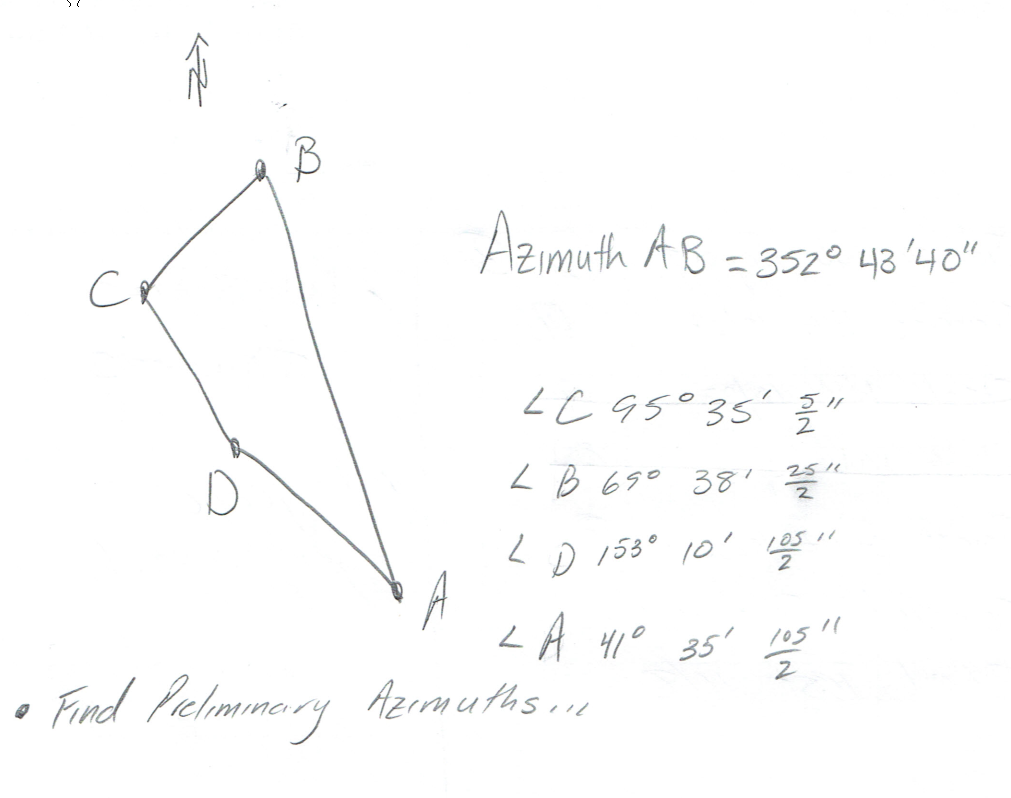 N
B
Azimuth AB = 352° 43' 40"
C
∠ C 95° 35' 5/2"
∠ B 69° 38' 25/2"
D
∠ D 153° 10' 105/2"
A
∠ A 41° 35' 105/2"
• Find Preliminary Azimuths...